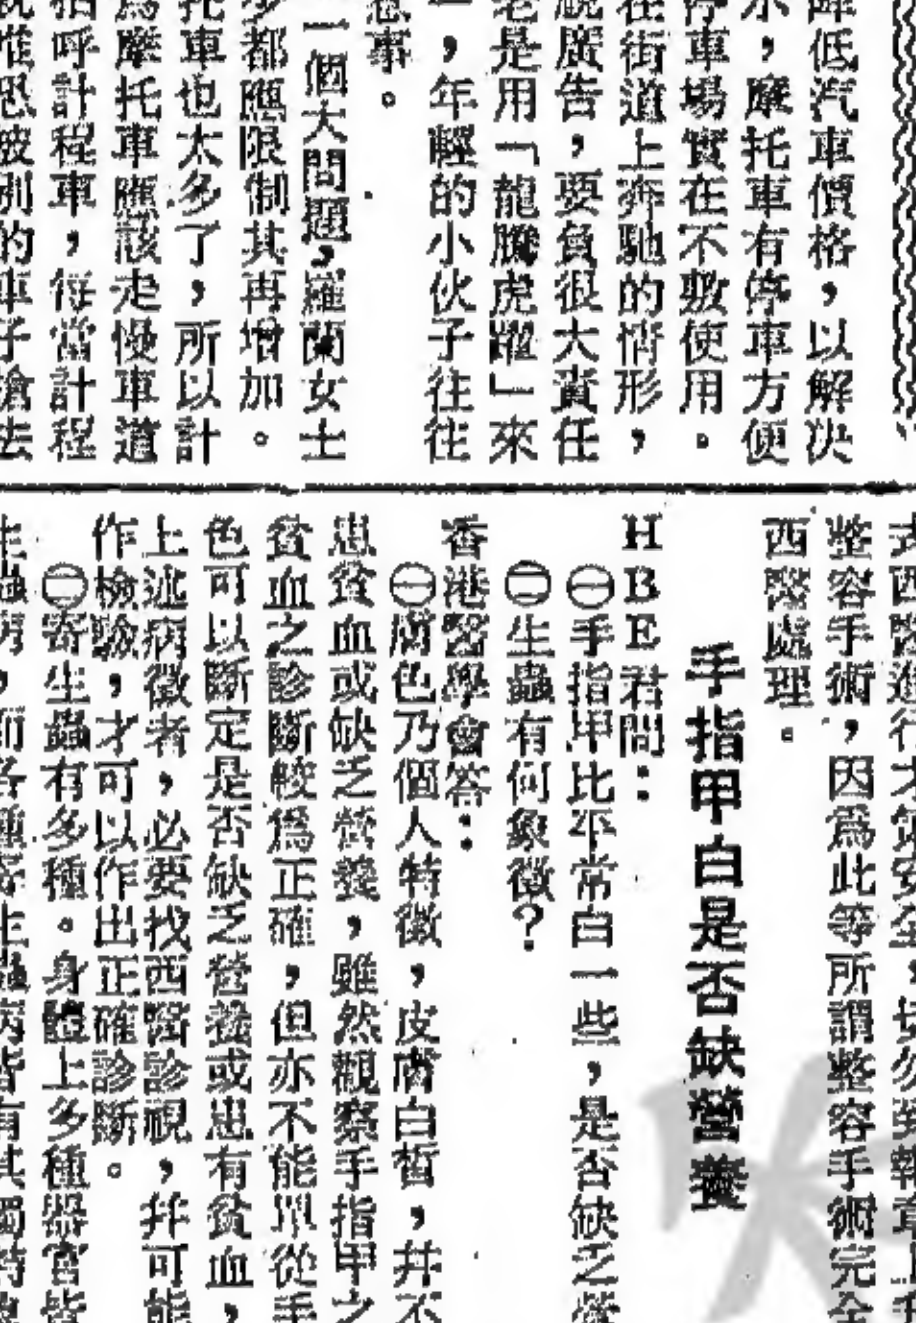 降低汽車價格，以解決
水，摩托車有停車方便
停車場實在不敷使用。
在街道上奔馳的情形，
視廣告，要負很大責任
老是用「龍騰虎躍」來
一，年輕的小伙子往往
惹事。
一個大問題，羅蘭女士
多都應限制其再增加。
托車也太多了，所以計
為摩托車應該走慢車道
招呼計程車，每當計程
就唯恐被別的車子搶去
式西醫進行才算安全，切勿到報章上刊
整容手術，因爲此等所謂整容手術完全
西醫處理。
手指甲白是否缺營養
HBE君問：
㊀手指甲比平常白一些，是否缺乏營
㊁生蟲有何象徵？
香港醫學會答：
㊀膚色乃個人特徵，皮膚白晢，幷不
患貧血或缺乏營養，雖然觀察手指甲之
貧血之診斷較爲正確，但亦不能單從手
色可以斷定是否缺乏營養或患有貧血，
上述病徵者，必要找西醫診視，幷可能
作檢驗，才可以作出正確診斷。
㊁寄生蟲有多種。身體上多種器官皆
生蟲病，而各種寄生蟲病皆有其獨特